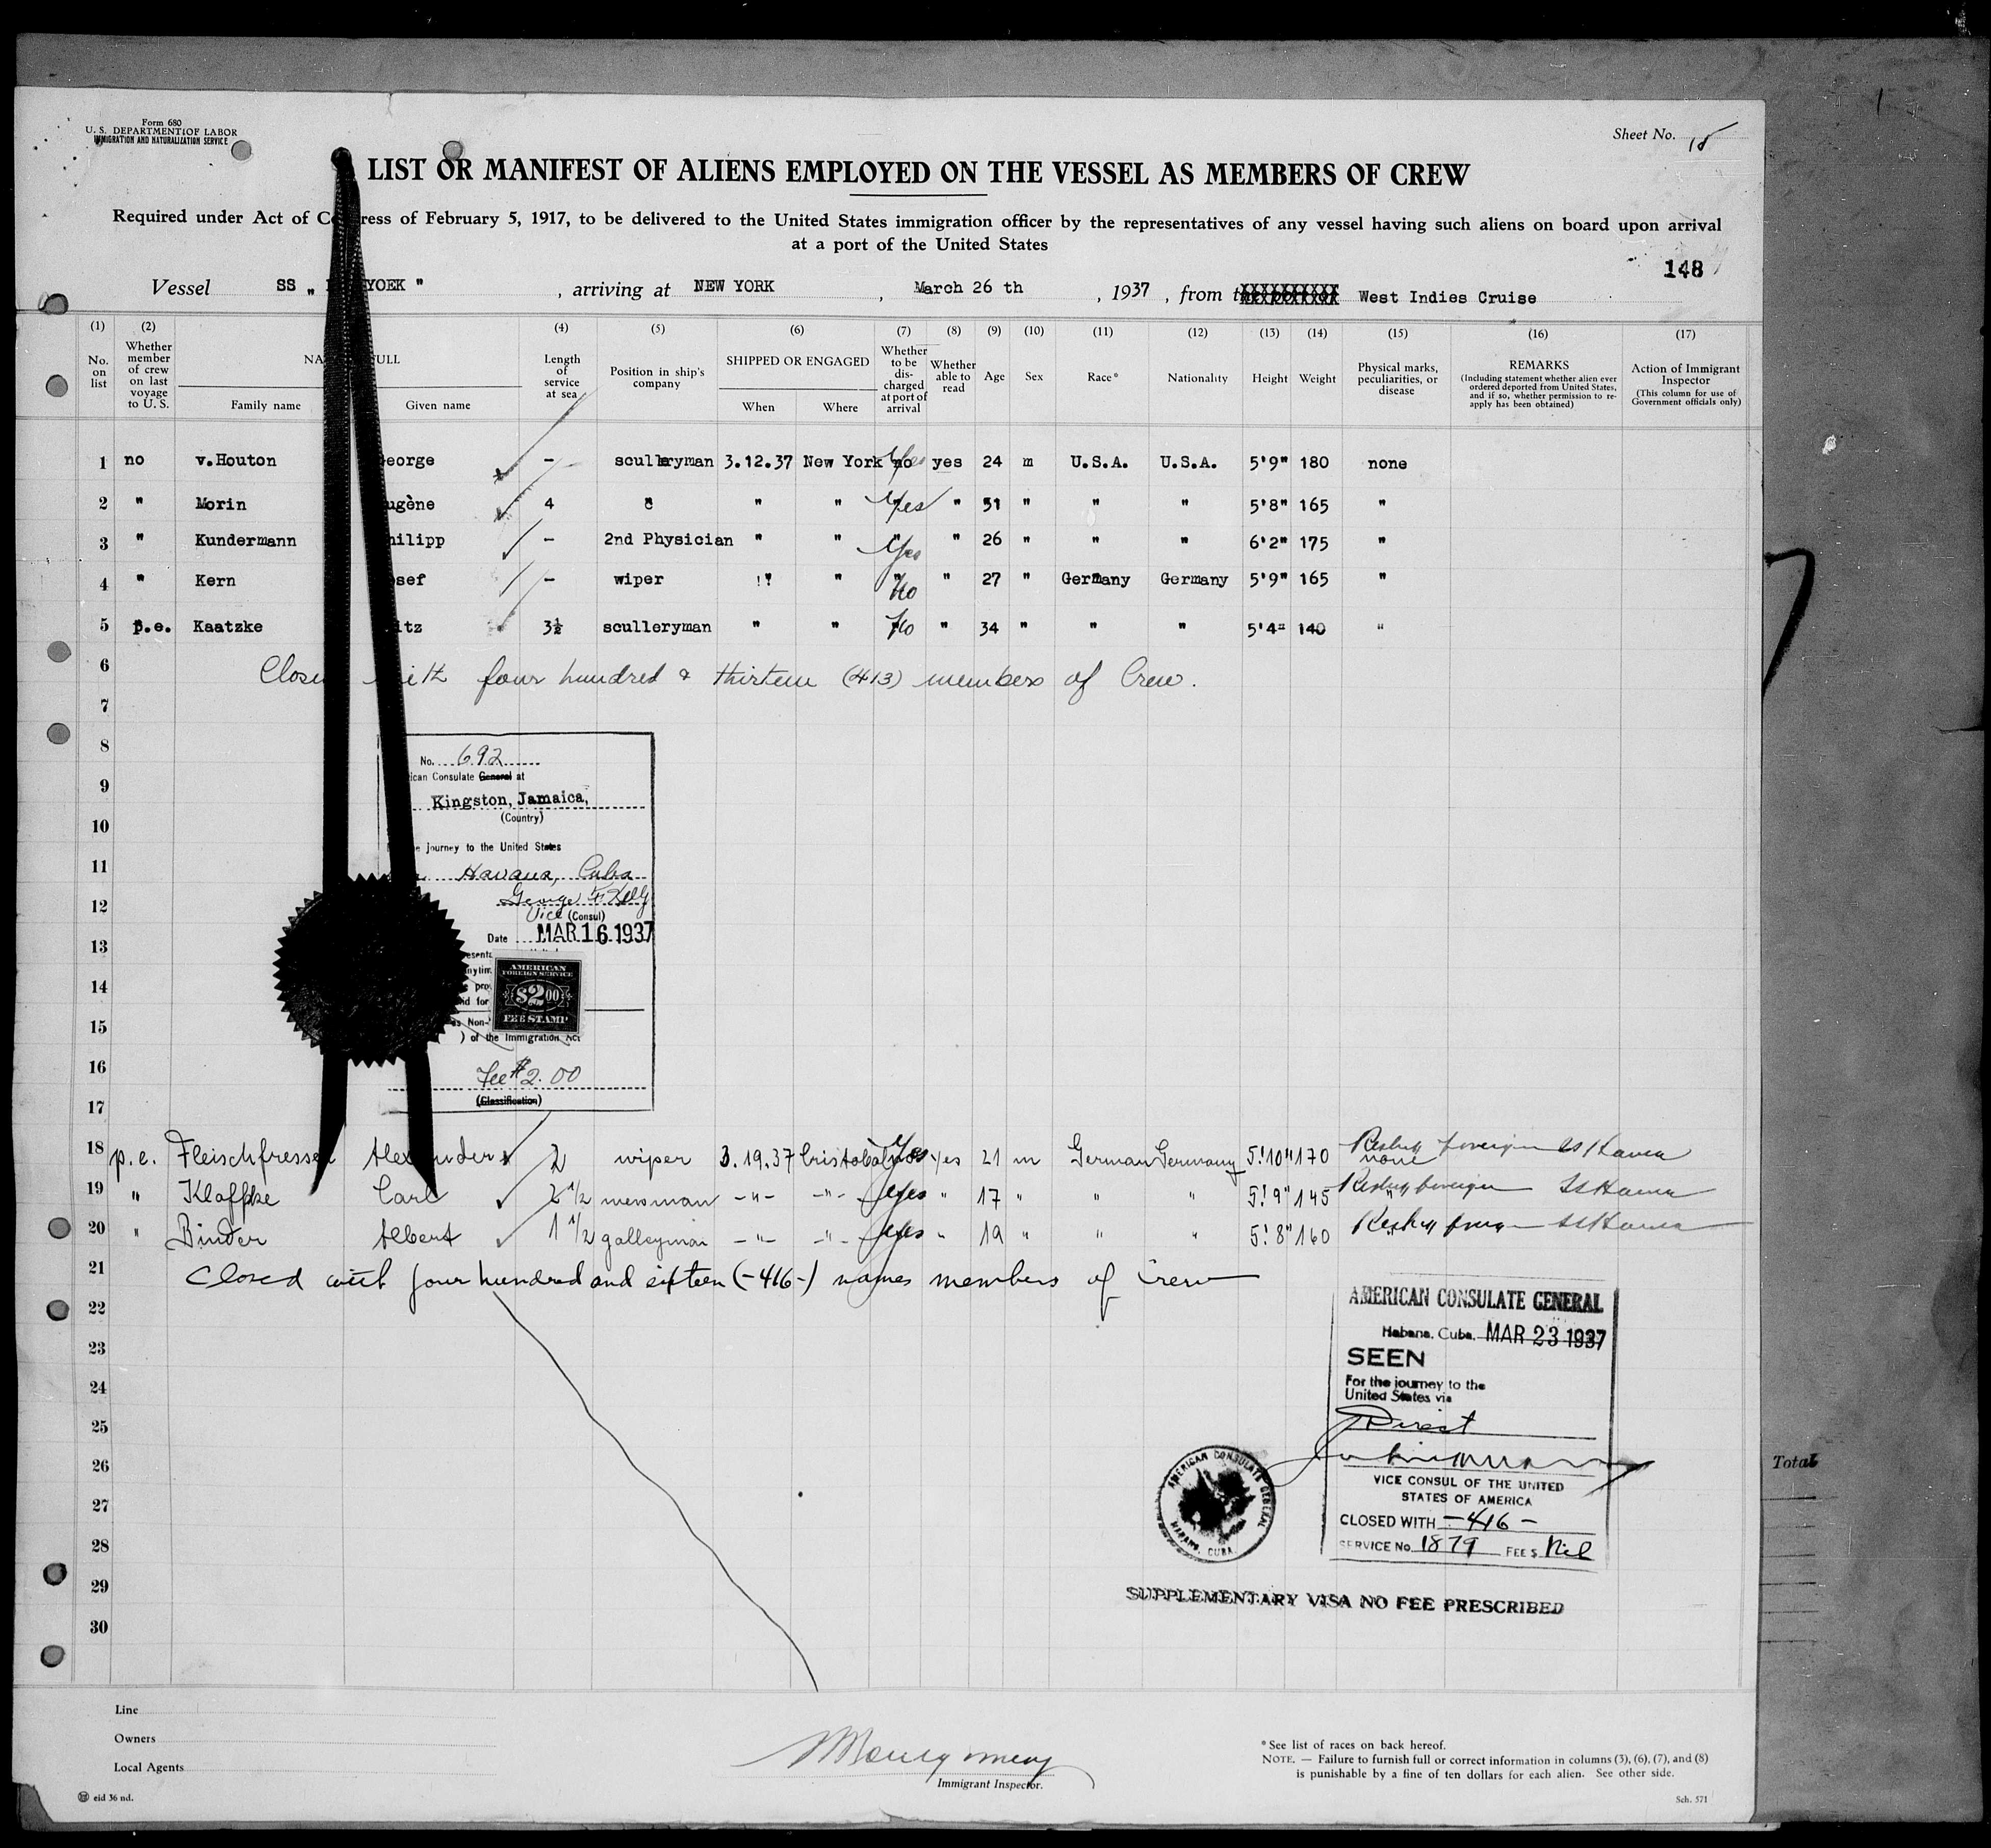 Form 680
U. S. DEPARTMENT OF LABOR
IMMIGRATION AND NATURALIZATION SERVICE
Sheet No. 18
LIST OR MANIFEST OF ALIENS EMPLOYED ON THE VESSEL AS MEMBERS OF CREW
Required under Act of Co ress of February 5, 1917, to be delivered to the United States immigration officer by the representatives of any vessel having such aliens on board upon arrival
at a port of the United States
148
Vessel SS „ YOEK " , arriving at NEW YORK , March 26 th , 1937 , from the port of West Indies Cruise
(1) (2) (4) (5) (6) (7) (8) (9) (10) (11) (12) (13) (14) (15) (16) (17)
No. on list
Whether member of crew on last voyage to U. S.
NA FULL
Family name
Given name
Length of service at sea
Position in ship's company
SHIPPED OR ENGAGED
When
Where
Whether to be dis-charged at port of arrival
Whether able to read
Age
Sex
Race*
Nationality
Height
Weight
Physical marks, peculiarities, or disease
REMARKS
(Including statement whether alien ever ordered deported from United States, and if so, whether permission to re-apply has been obtained)
Action of Immigrant Inspector
(This column for use of Government officials only)
1 no v.Houton eorge - sculleryman 3.12.37 New York no Yes yes 24 m U.S.A. U.S.A. 5'9" 180 none
2 " Morin ugène 4 " " " Yes " 51 " " " 5'8" 165 "
3 " Kundermann hilipp - 2nd Physician " " " Yes " 26 " " " 6'2" 175 "
4 " Kern sef - wiper " " " No " 27 " Germany Germany 5'9" 165 "
5 p.e. Kaatzke itz 3½ sculleryman " " " No " 34 " " " 5'4" 140 "
6 Close with four hundred & thirteen (413) members of Crew.
7
8
No. 692
ican Consulate General at
9
Kingston, Jamaica,
(Country)
10
e journey to the United States
11
Havana, Cuba
George F. Kelly
12
Vice (Consul)
13
Date MAR 16 1937
14
AMERICAN
FOREIGN SERVICE
$2 00
FEE STAMP
15
as Non-
) of the Immigration Act
16
Fee $2.00
(Classification)
17
18 p.e. Fleischfresser Alexander 2 wiper 3.19.37 Cristobal Yes yes 21 m German Germany 5'10" 170 none
19 " Klaffke Carl 2 1/2 messman -"- -"- Yes " 17 " " " 5'9" 145
20 " Binder Albert 1 1/2 galleyman -"- -"- Yes " 19 " " " 5'8" 160
21 Closed with four hundred and sixteen (-416-) names members of Crew
22
AMERICAN CONSULATE GENERAL
Habana, Cuba, MAR 23 1937
23
SEEN
24
For the journey to the
United States via
25
Direct
26
VICE CONSUL OF THE UNITED
STATES OF AMERICA
27
CLOSED WITH -416-
28
SERVICE No. 1879 FEE $ Nil
AMERICAN CONSULATE GENERAL
HABANA, CUBA.
29
SUPPLEMENTARY VISA NO FEE PRESCRIBED
30
Total
Line
Owners
Local Agents
Montgomery
Immigrant Inspector.
* See list of races on back hereof.
NOTE. — Failure to furnish full or correct information in columns (3), (6), (7), and (8)
is punishable by a fine of ten dollars for each alien. See other side.
eid 36 nd.
Sch. 571